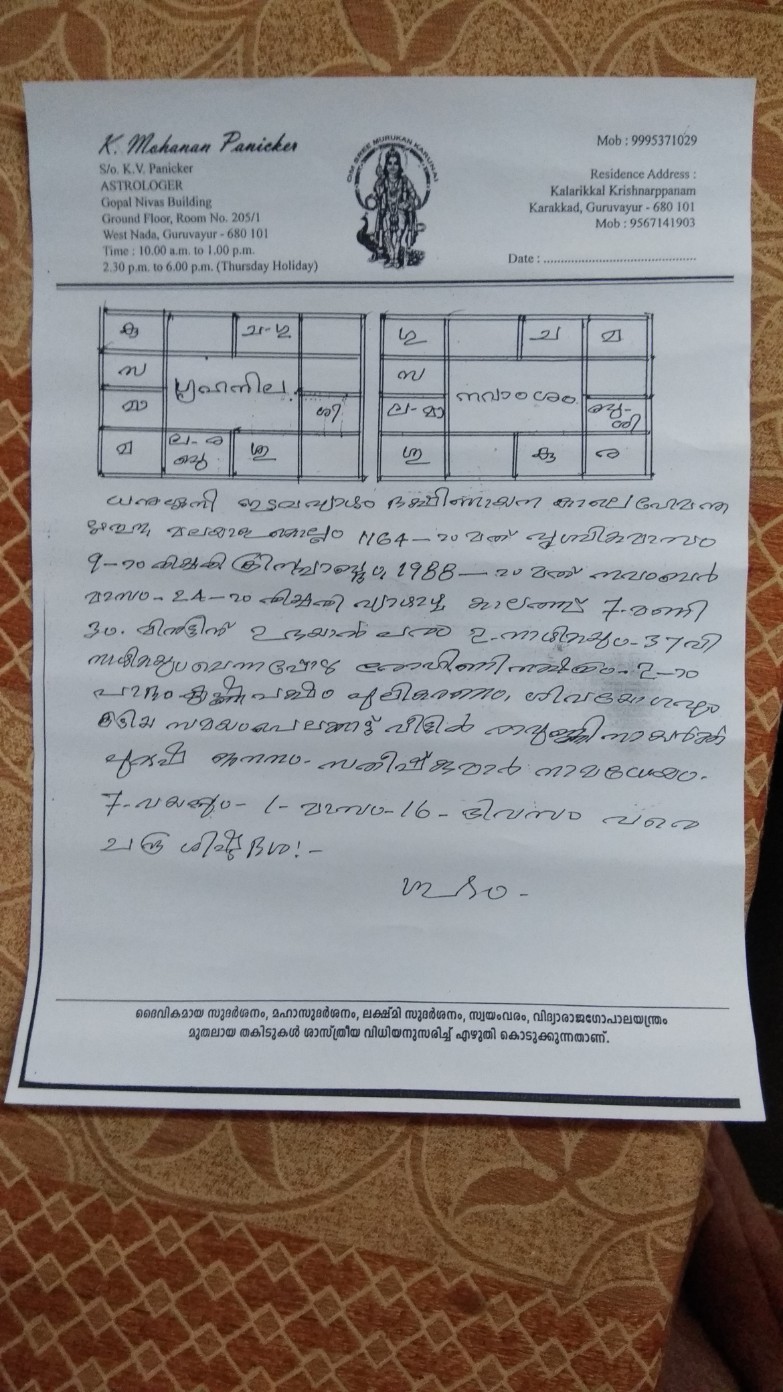 K. Mohanan Panicker
S/o. K.V. Panicker
ASTROLOGER
Gopal Nivas Building
Ground Floor, Room No. 205/1
West Nada, Guruvayur - 680 101
Time : 10.00 a.m. to 1.00 p.m.
2.30 p.m. to 6.00 p.m. (Thursday Holiday)
OM SREE MURUKAN KARUNAI
Mob : 9995371029
Residence Address :
Kalarikkal Krishnarppanam
Karakkad, Guruvayur - 680 101
Mob : 9567141903
Date : ..............................................
കു ച-ഗു
സ
മാ ശി
മ ല-ര ശു
ഗ്രഹനില
ച മ
സ
ല-മാ
കു ര
നവാംശം
ദക്ഷിണായന
1164-ാമത് വൃശ്ചികമാസം
9-ാം തിയ്യതി 1988-ാമത് നവംബർ
മാസം 24-ാം തിയ്യതി വ്യാഴാഴ്ച കാലത്ത് 7 മണി
30. മിനിട്ടിന് ഉദയാൽ പരം 2-നാഴികയും-37വി
നാഴികയും ചെന്നപ്പോൾ രോഹിണി നക്ഷത്രം-2-ാം
പാദം
സമയം വീട്ടിൽ
ജനനം-സതീഷ്കുമാർ നാമധേയം.
7-വയസ്സും-1-മാസം-16-ദിവസം വരെ
ചന്ദ്ര ശിഷ്ടദശ!-
ശുഭം-
ദൈവികമായ സുദർശനം, മഹാസുദർശനം, ലക്ഷ്മി സുദർശനം, സ്വയംവരം, വിദ്യാരാജഗോപാലയന്ത്രം
മുതലായ തകിടുകൾ ശാസ്ത്രീയ വിധിയനുസരിച്ച് എഴുതി കൊടുക്കുന്നതാണ്.